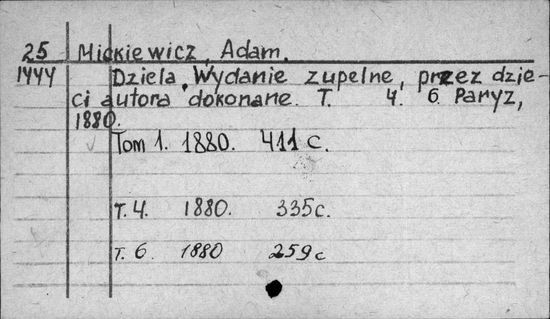 25 Mickiewicz, Adam.
1444 Dziela. Wydanie zupelne, przez dzie-
ci autora dokonane. T. 4. 6. Paryz,
1880.
Tom 1. 1880. 411 c.
T. 4. 1880. 335 c.
T. 6. 1880 259 c